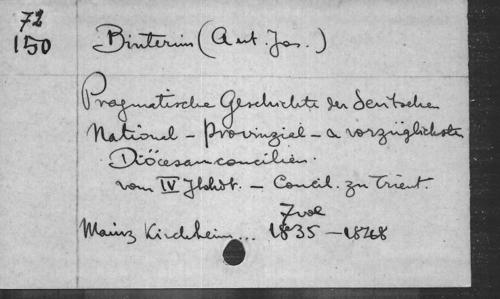 72
150
Binterim (Ant. Jos.)
Pragmatische Geschichte der deutschen
National - Provinzial - u vorzüglichsten
Diöcesanconcilien.
vom IV Jhhdt. - Concil. zu Trient.
7 vol
Mainz Kirchheim... 1835 - 1848